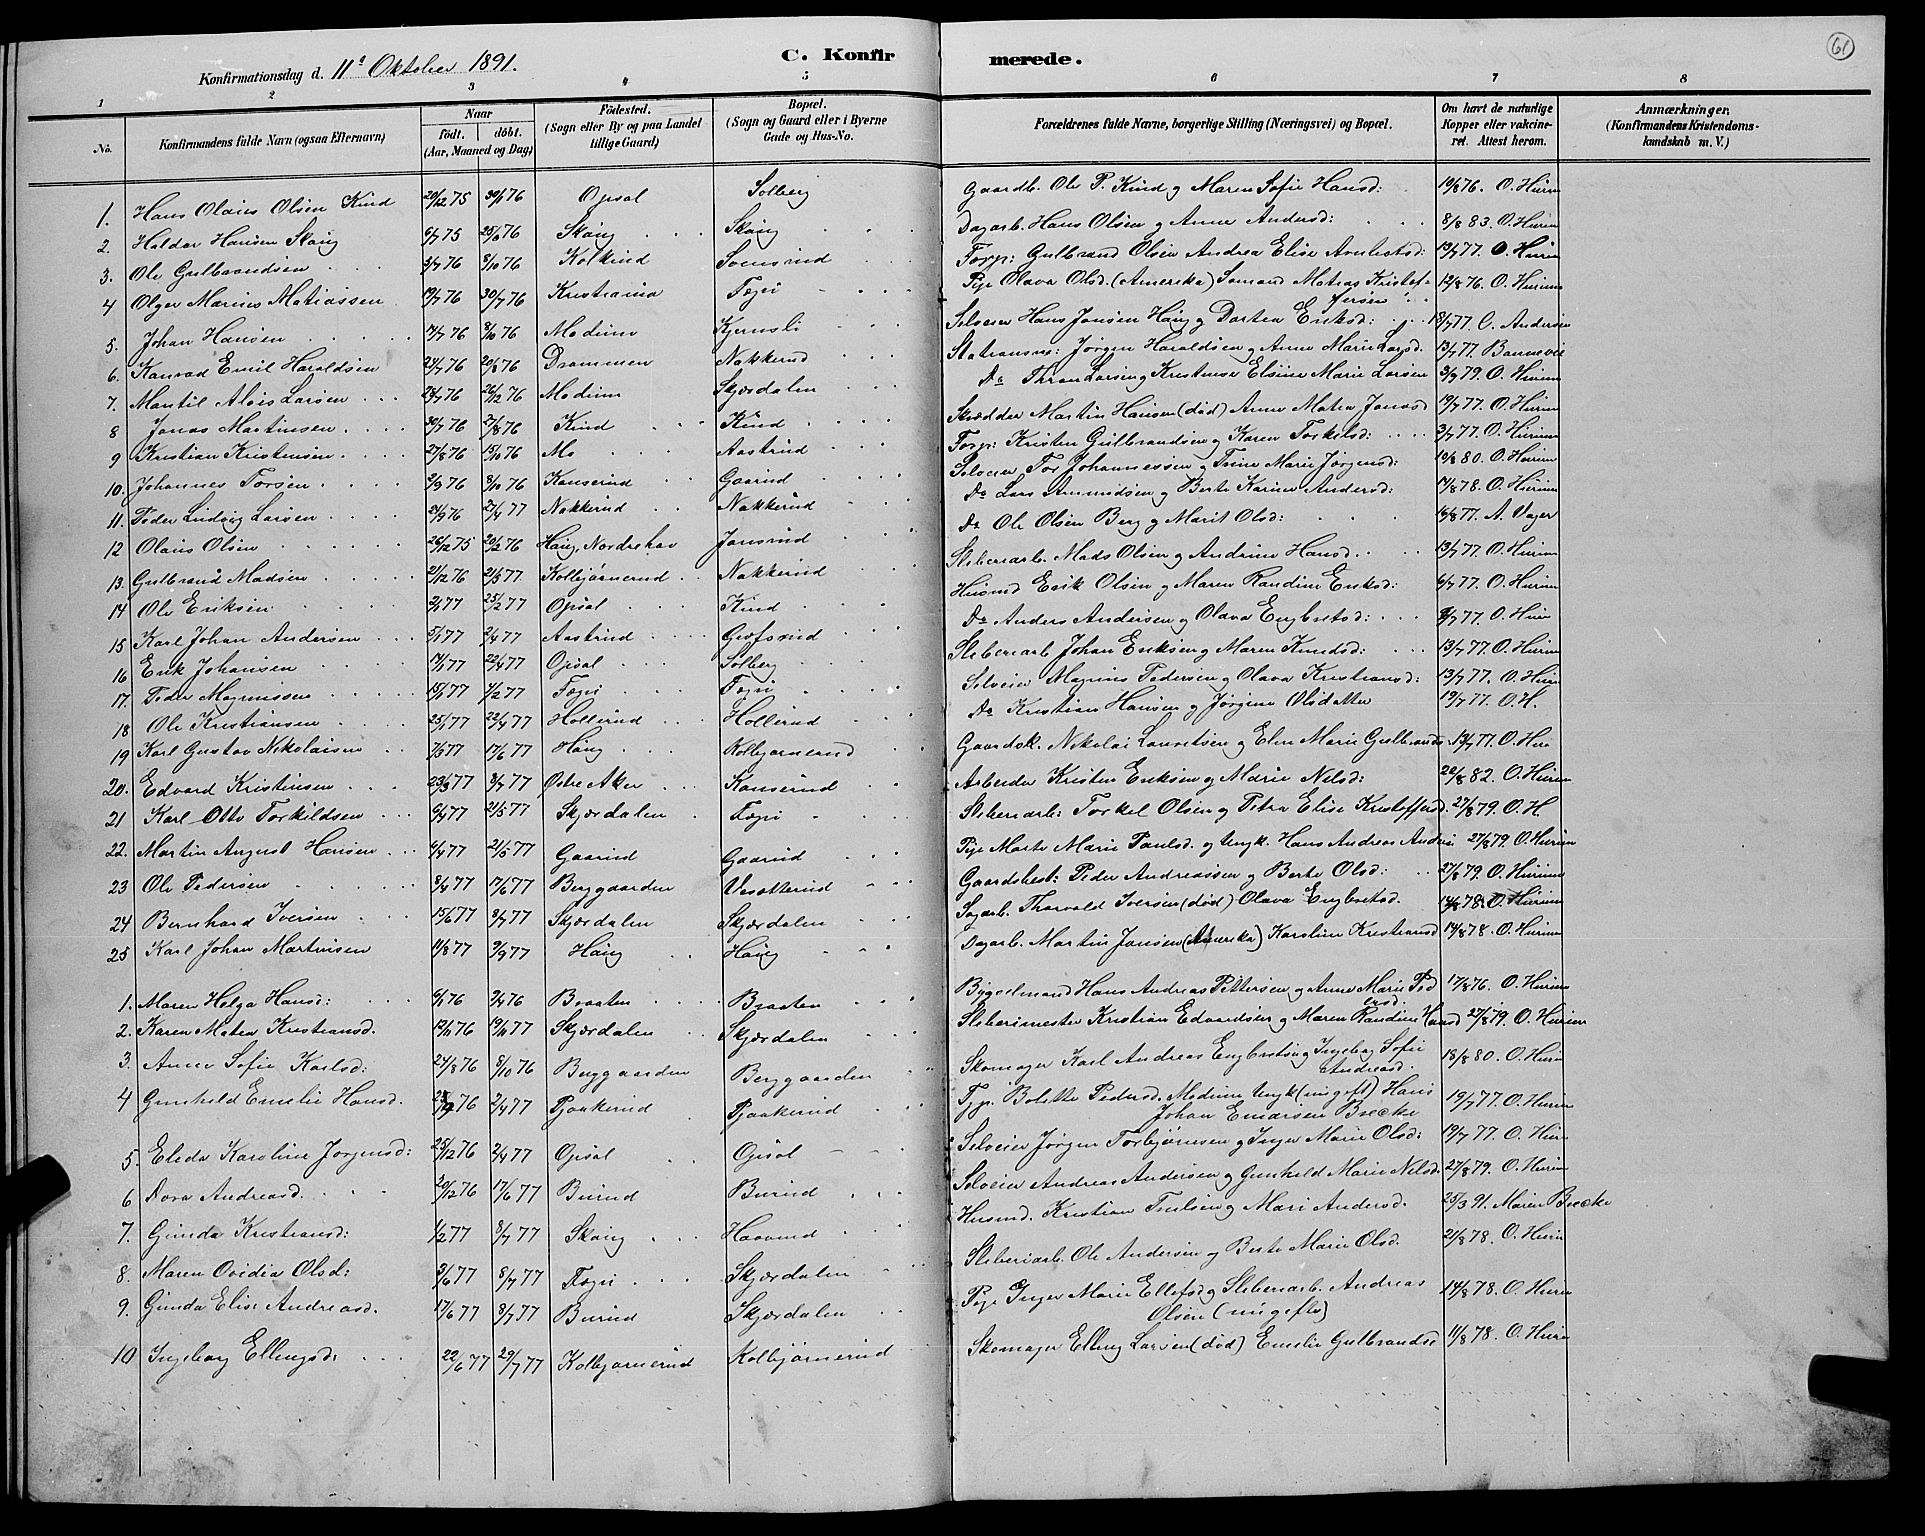 61
Konfirmationsdag d. 11te Oktober 1891.
C. Konfirmerede.
1 2 3 4 5 6 7 8
No. Konfirmandens fulde Navn (ogsaa Efternavn) Naar født. døbt. (Aar, Maaned og Dag) Fødested. (Sogn eller By og paa Landet tillige Gaard) Bopæl. (Sogn og Gaard eller i Byerne Gade og Hus-No. Forældrenes fulde Navne, borgerlige Stilling (Næringsvei) og Bopæl. Om havt de naturlige Kopper eller vakcineret. Attest herom. Anmærkninger, (Konfirmandens Kristendomskundskab m. V.)
1. Hans Olaus Olsen Kind 20/12 75 30/1 76 Opsal Solberg Gaardb. Ole P. Kind og Maren Sofie Hansd: 19/8 76. O. Hurum
2. Haldor Hansen Skaug 75 76 Skaug Skaug Dagarb. Hans Olsen og Anne Andersd: 8/8 83. O. Hurum
3. Ole Gulbrandsen 3/7 76 8/10 76 Kolkind Svensrud Forp: Gulbrand Olsen Andrea Elise 13/7 77. O. Hurum
4 Olger Marius Matiassen 19/7 76 30/7 76 Kristiania Fægri Pige Olava Olsd. (Amerika) Sømand Matias Kristoffersen 12/8 76. O. Hurum
5. Johan Hansen 76 8/10 76 Modum Kjernsli Selveier Hans Jonsen Haug og Dortea Eriksd: 77. O. Andersen
6. Konrad Emil Haroldsen 24/7 76 20/8 76 Drammen Nakkerud Jørgen Haraldsen og Anne Marie Larsd. 13/7 77.
7. Mantil Alois Larsen 76 26/12 76 Modum Skjærdalen Do Thron Larsen og Kristense Elsine Marie Larsen 3/9 79. O. Hurum
8 Jonas Martinsen 30/7 76 27/8 76 Kind Kind Skrædder Martin Hansen (død) Anne Matea Jonasd 19/7 77. O. Hurum
9 Kristian Kristensen 27/8 76 76 Mo Aastrud Forp: Kristen Gulbrandsen og Karen Torkilsd: 3/7 77. O. Hurum
10. Johannes Torsen 2/9 76 8/10 76 Kanserud Gaarud Selveier Tor Johannessen og Trine Marie Jørgensd: 80. O. Hurum
11. Peder Ludvig Larsen 76 27/4 77 Nakkerud Nakkerud Do Lars Amundsen og Berte Karine Andersd: 17/8 78. O. Hurum
12 Olaus Olsen 26/12 75 20/2 76 Haug, Nordrehov Jonsrud Do Ole Olsen Berg og Marit Olsd: 77. A. Vager
13. Gulbrand Madsen 21/12 76 21/5 77 Kolbjørnerud Nakkerud Sliberiarb. Mads Olsen og Andrine Hansd. 13/7 77. O. Hurum
14 Ole Eriksen 77 25/2 77 Opsal Kind Husmd Erik Olsen og Maren Randine Eriksd: 6/7 77. O. Hurum
15 Karl Johan Andersen 5/1 77 2/4 77 Aastrud Grøfsrud Do Anders Andersen og Olava Engbretsd: 77. O. Hurum
16 Erik Johansen 77 22/4 77 Opsal Solberg Sliberiarb Johan Eriksen og Maren Knudsd: 13/7 77. O. Hurum
17. Peder Magnussen 15/1 77 4/2 77 Fægri Fægri Selveier Magnus Pedersen og Olava Kristiansd: 13/7 77. O. Hurum
18 Ole Kristiansen 25/1 77 22/4 77 Hollerud Hollerud Do Kristian Hansen og Jørgine Olsdatter 19/7 77. O. H.
19 Karl Gustav Nikolaisen 77 17/6 77 Haug Kolbjørnerud Gaardsk. Nikolai Lauretsen og Elen Marie Gulbrandsd 13/7 77. O. Hur
20. Edvard Kristensen 23/3 77 8/7 77 Østre Aker Kanserud Arbeider Kristen Eriksen og Marie Nilsd: 20/8 82. O. Hurum
21 Karl Otto Torkildsen 9/4 77 21/5 77 Skjærdalen Fægri Sliberiarb: Torkel Olsen og Petra Elise Kristoffersd. 27/8 79. O. H
22. Martin August Hansen 9/4 77 21/5 77 Gaarud Gaarud Pige Marte Marie Paulsd. og Ungk. Hans Andreas 27/8 79. O. Hurum
23 Ole Pedersen 8/4 77 17/6 77 Berggaarden Vesætterud Gaardsbest: Peder Andreassen og Berte Olsd: 27/8 79. O. Hurum
24 Bernhard Iversen 15/6 77 8/7 77 Skjærdalen Skjærdalen Sagarb. Thorvald Iversen (død) Olava Engbretsd. 14/8 78. O. Hurum
25 Karl Johan Martinsen 11/8 77 9/9 77 Haug Haug Dagarb. Martin Jansen (Amerika) Karoline Kristiansd 14/8 78. O. Hurum
1. Maren Helga Hansd: 6/1 76 2/4 76 Braaten Braaten Bygselmand Hans Andreas Pettersen og Anne Marie Pedersd. 17/8 76. O. Hurum
2. Karen Matea Kristiansd. 76 77 Skjærdalen Skjærdalen Sliberimester Kristian Edvardsen og Maren Randine Hansd 27/8 79. O. Hurum
3. Anna Sofie Karlsd: 24/8 76 8/10 76 Berggaarden Berggaarden Skomager Karl Andreas Engbretsen og Ingebor Sofie Andreasd. 18/8 80. O. Hurum
4 Gunhild Emelie Hansd. 76 2/4 77 Pjaakerud Pjaakerud Bolette Pedersd. Modum Ungk (ugift) Hans Johan Enarsen Bræcke 19/7 77. O. Hurum
5. Eleda Karoline Jørgensd: 25/12 76 2/4 77 Opsal Opsal Selveier Jørgen Torbjørnsen og Inger Marie Olsd: 19/7 77. O. Hur
6 Dora Andreasd. 20/12 76 17/6 77 Burud Burud Selveier Andreas Andersen og Gunhild Marie Nilsd. 27/8 79. O. Hurum
7. Gunda Kristiansd: 1/2 77 8/7 77 Skaug Haavrud Husmd. Kristian Truelsen og Mari Andersd. 25/3 91. Maren Bræcke
8. Maren Ovidia Olsd: 3/6 77 8/7 77 Fægri Skjærdalen Sliberiarb. Ole Andersen og Berte Marie Olsd. 21/8 78. O. Hurum
9. Gunda Elise Andreasd. 17/6 77 8/7 77 Burud Skjærdalen Pige Inger Marie Ellefsd og Sliberiarb. Andreas Olsen (ungifte) 14/8 78. O. Hurum
10 Ingeborg Ellingsd: 22/6 77 29/7 77 Kolbjørnerud Kolbjørnerud Skomager Elling Larsen (død) Emelie Gulbrandsd 11/8 78. O. Hurum